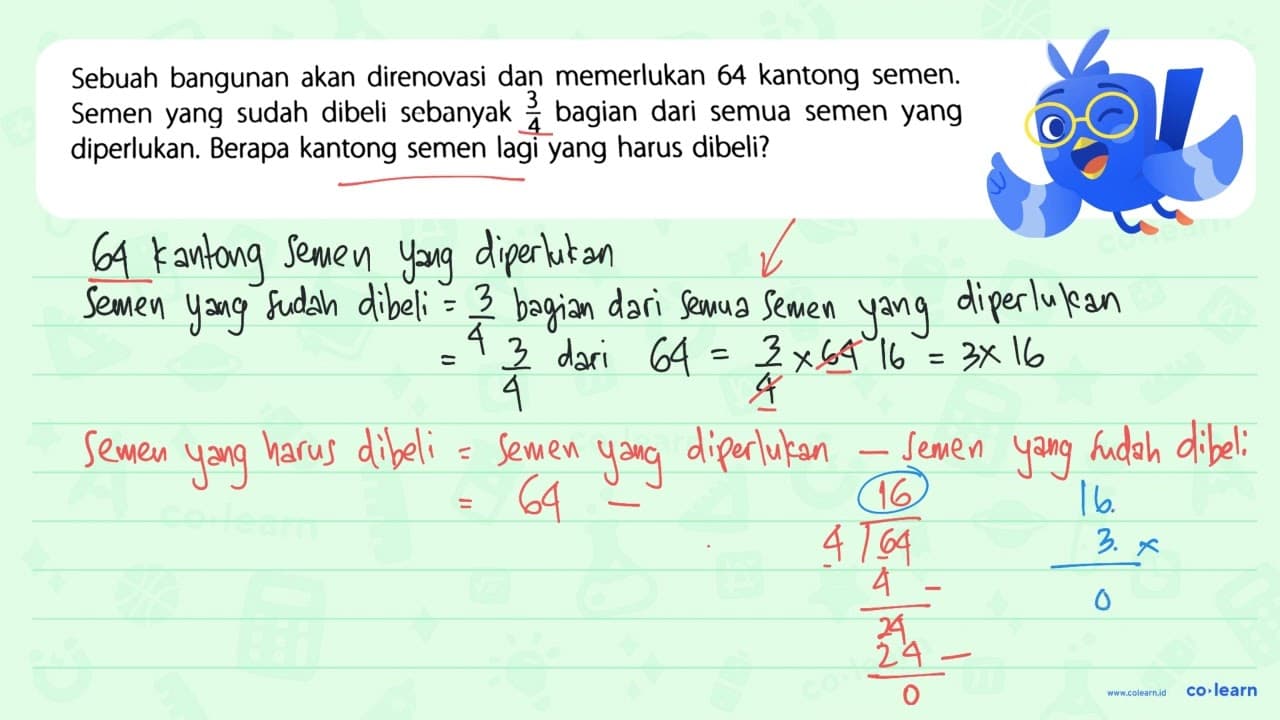 Sebuah bangunan akan direnovasi dan memerlukan 64 kantong semen.
Semen yang sudah dibeli sebanyak 3/4 bagian dari semua semen yang
diperlukan. Berapa kantong semen lagi yang harus dibeli?
64 kantong semen yang diperlukan
Semen yang sudah dibeli = 3/4 bagian dari semua semen yang diperlukan
= 3/4 dari 64 = 3/4 × 64 16 = 3 × 16
Semen yang harus dibeli = semen yang diperlukan — semen yang sudah dibeli
= 64 —
16
4 64
4 —
24
24 —
0
16
3 ×
0
www.colearn.id co·learn